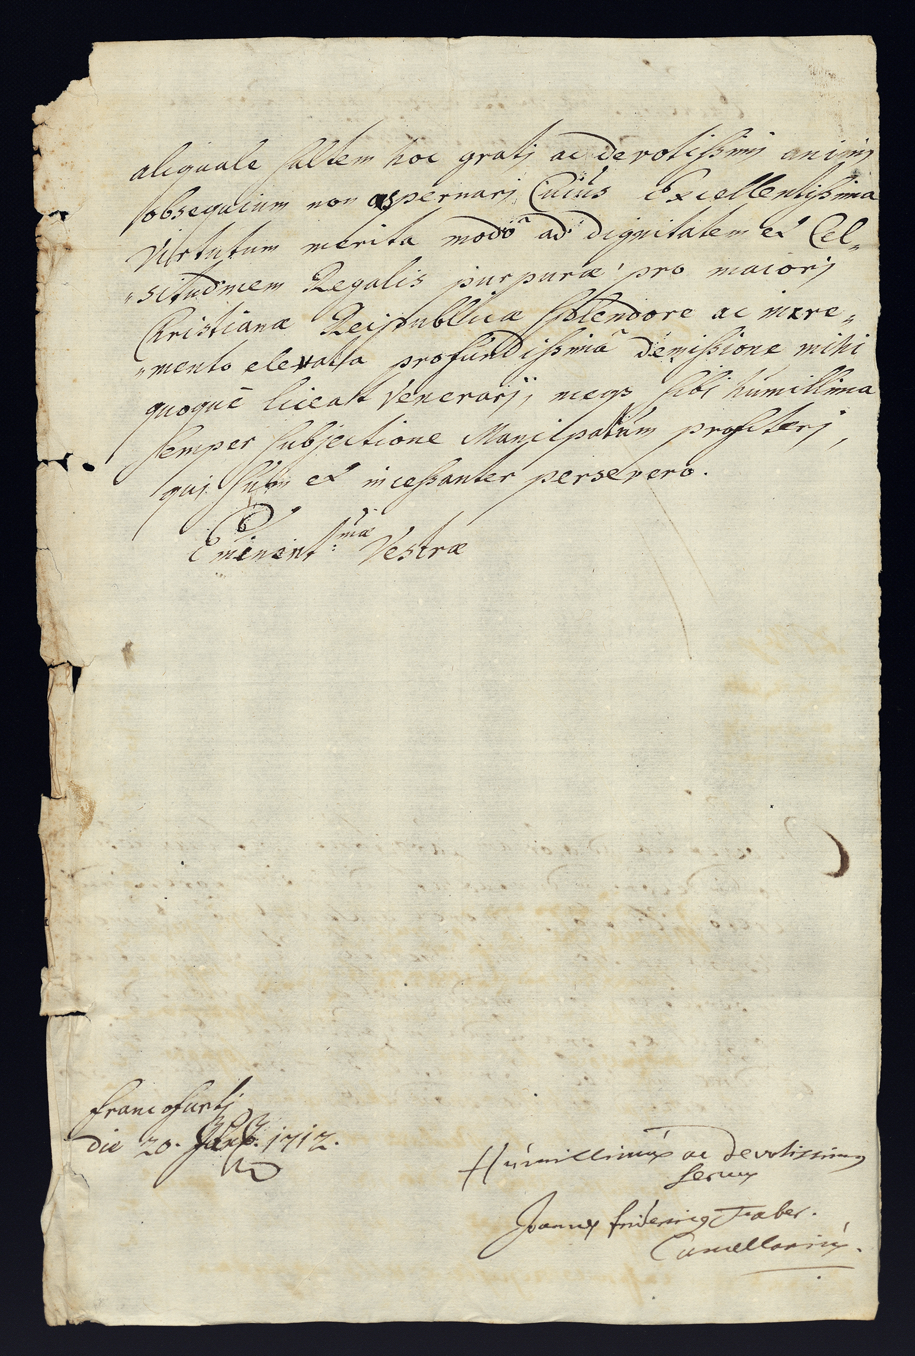 aliquale saltem hoc gratj ac devotissimj animj
obsequium non aspernarj Cuius Excellentissima
Virtutum merita modò ad dignitatem et Cel„
„situdinem Regalis purpuræ, pro maiorj
Christianæ Reipublicæ Splendore ac incre„
„mento elevatta profundissimâ demissione mihi
quoquè liceat Venerarij, meqs sibj humillima
semper subjectione Mancipatum profiterj,
quj sum et incessanter persevero.
Eminent:mæ Vestræ
francofurtj
die 20. 1712.
Humillimus ac devotissimus
servus
Joannes fridericus Faber.
Cancellarius.